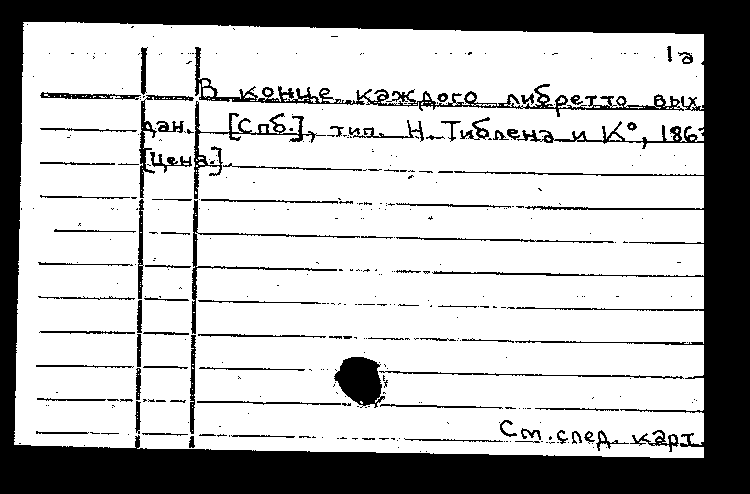 1а.
В конце каждого либретто вых.
дан.: [Спб.], тип. Н. Тиблена и К°, 1863
[Цена.].
См. след. карт.